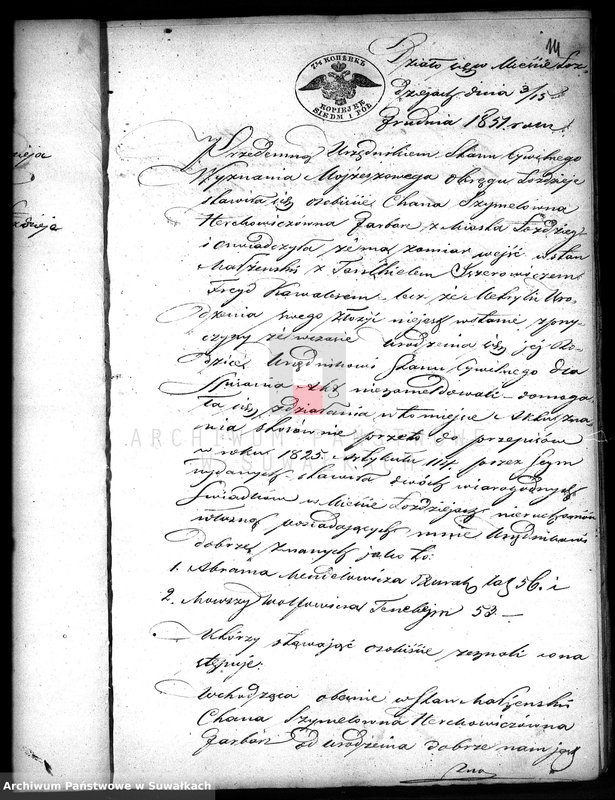 14
7½ КОПѢЕКЪ
KOPIEJEK
SIEDM I PÓŁ
Działo się w Mieście Łoz-
dziejach dnia 3/15
Grudnia 1851 roku
Przedemną Urzędnikiem Stanu Cywilnego
Wyznania Mojżeszowego Okręgu Łozdzieje
stawiła się osobiście Chana Szymelowna
Herchowiczówna Garbar, z Miasta Łozdziej
i oświadczyła że ma zamiar wejść w stan
Małżeński z Jerowiczem
Freyd Kawalerem lecz że Metryki Uro-
dzenia swego złożyć niejest wstanie, z przy-
czyny że wczasie urodzenia się jej Ro-
dzice Urzędnikowi Stanu Cywilnego dla
spisania aktu niezameldowali – domaga-
ła się zdziałania w to miejsce Aktu zna-
nia stosownie przeto do przepisów
w roku 1825 Artykułu 114 przez Seym
wydanych stawiła dwóch wiarogodnych
Świadków w Mieście Łozdziejach nieruchomość
własną posiadających mnie Urzędnikowi
dobrze znanych jako to:
1. Abrama Mendelowicza lat 56. i
2. Mowszy Wolfowicza 53. –
Którzy stawając osobiście zeznali co na
stępuje:
Wchodząca obecnie w Stan Małżeński
Chana Szymelowna Herchowiczówna
Garbar od urodzenia dobrze nam jest
zna
ARCHIWUM PAŃSTWOWE
W SUWAŁKACH
Archiwum Państwowe w Suwałkach